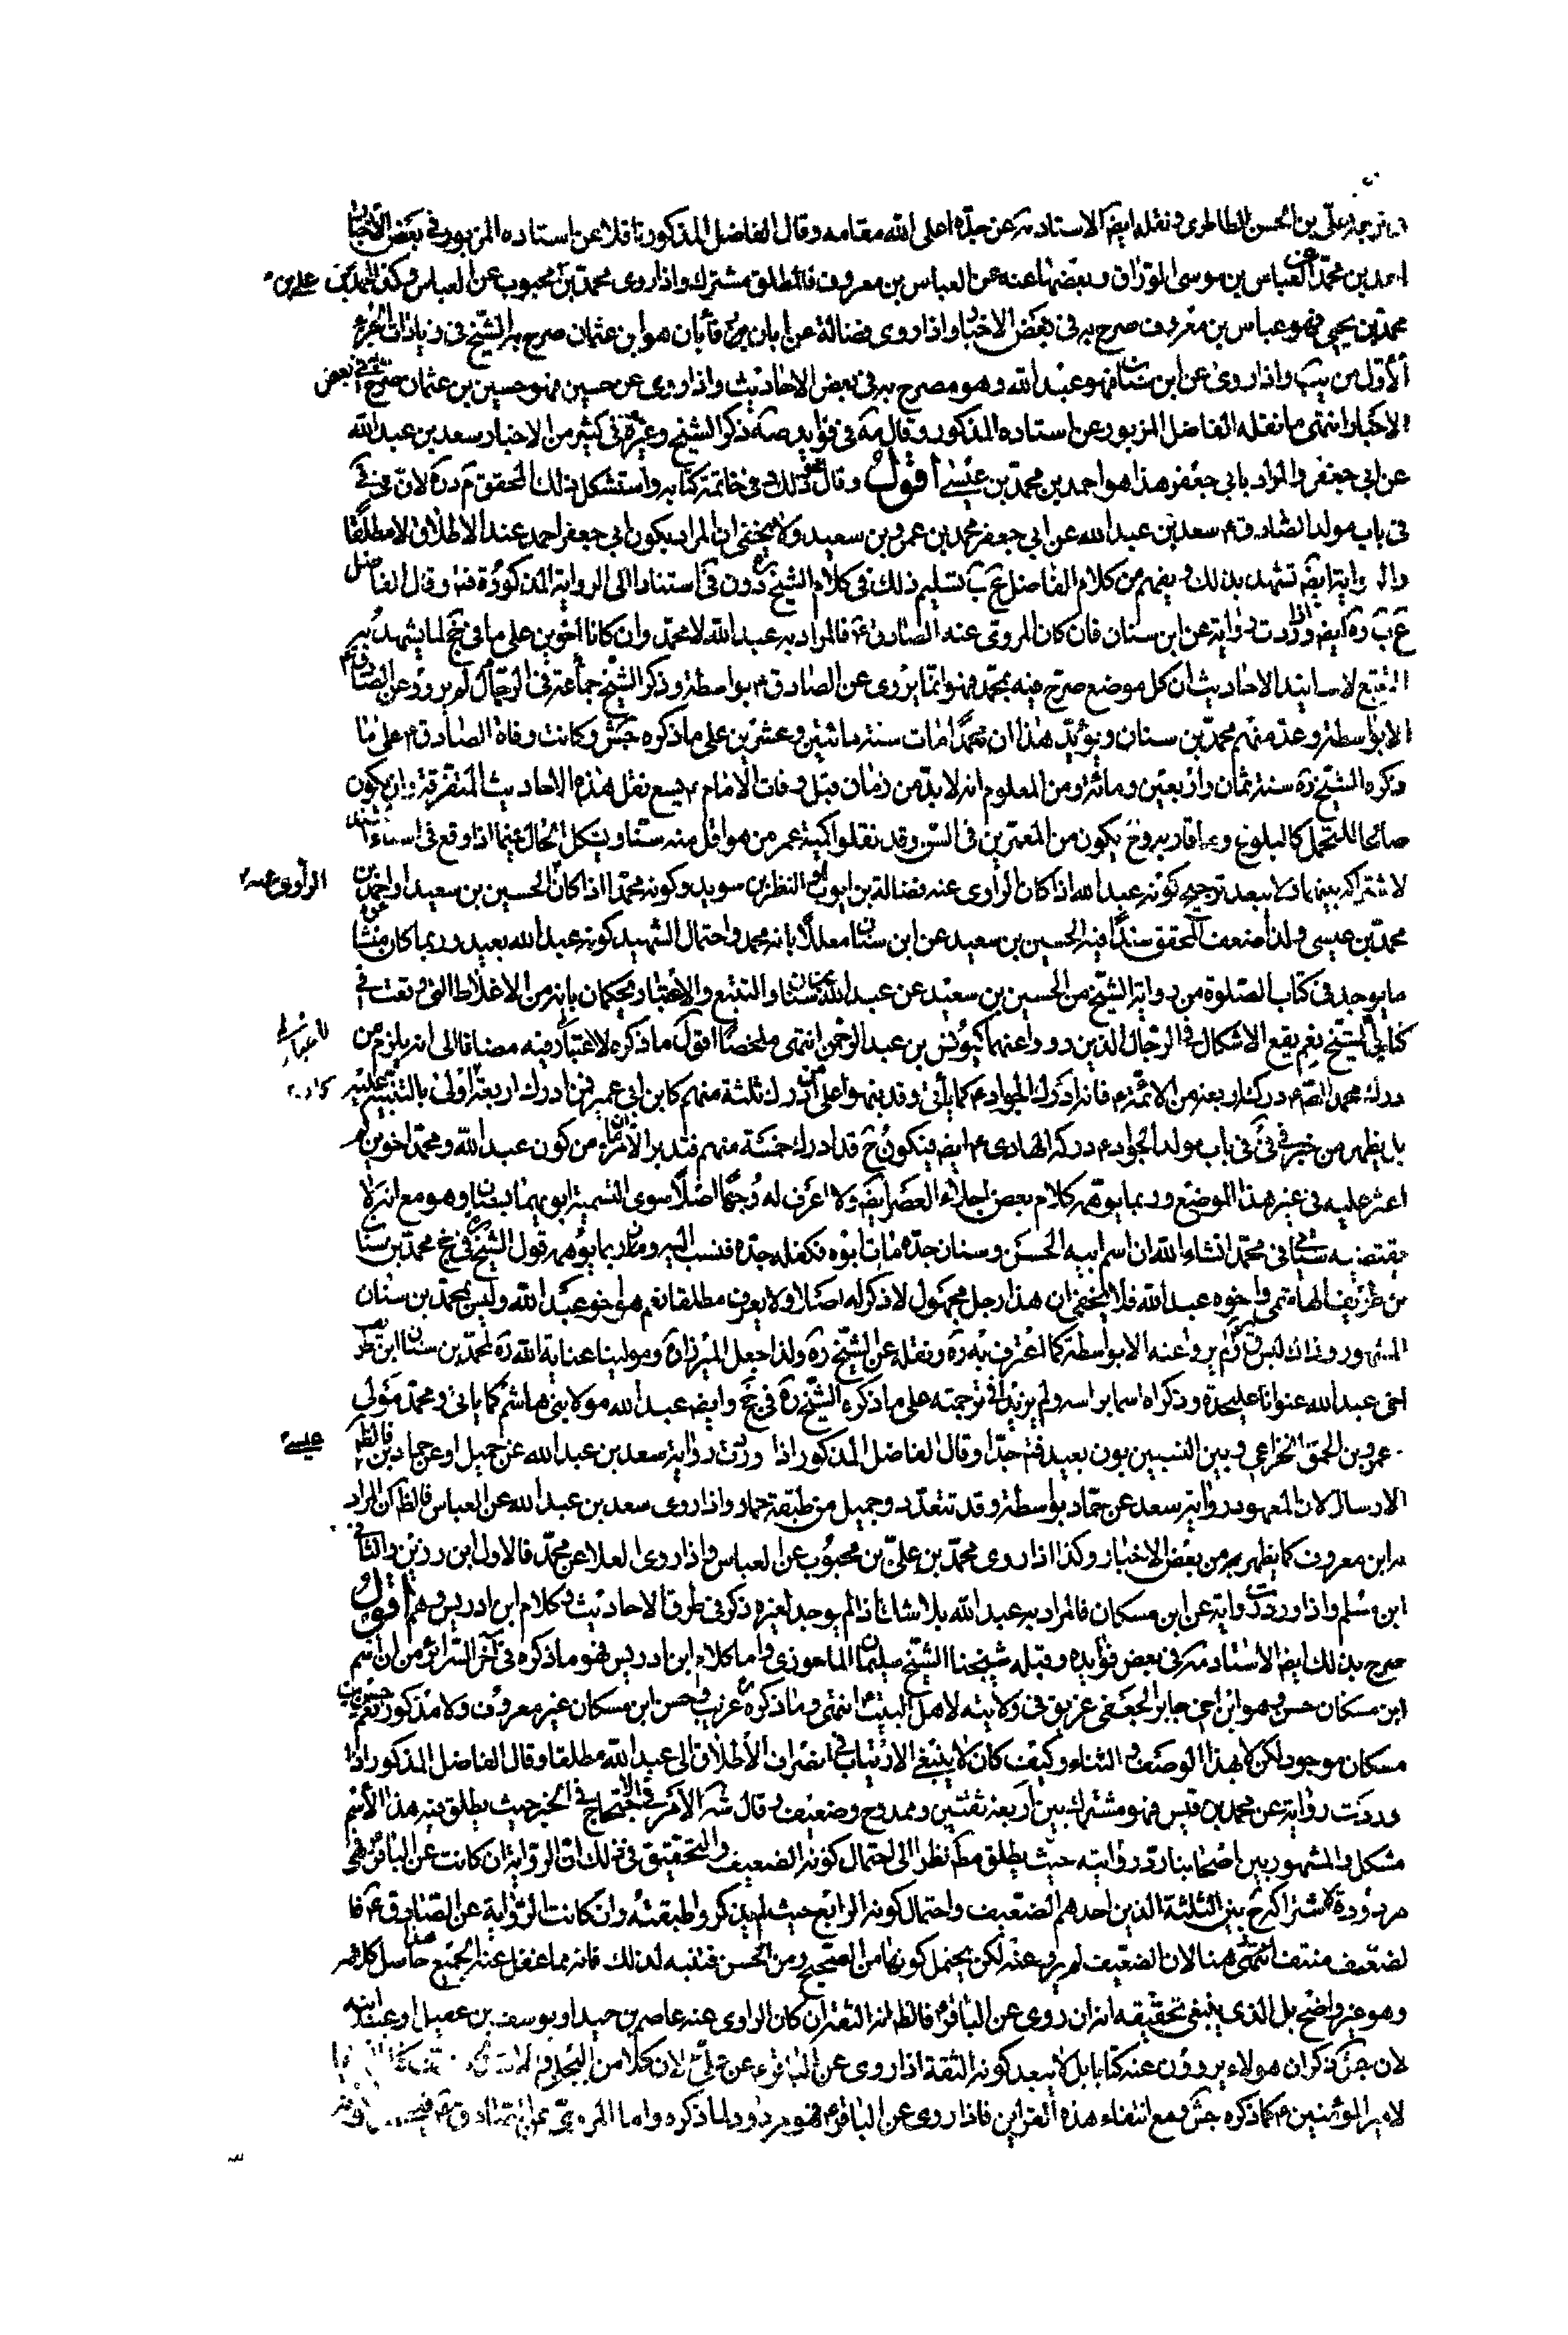 في ترجمة علي بن الحسن الطاطري ونقله ايضا الاستاد عن جده اعلى الله مقامه وقال الفاضل المذكور ناقلا عن استاده المزبور في بعض الأخبار
احمد بن محمد عن العباس بن موسى الوراق وبعضها عنه عن العباس بن معروف فالمطلق مشترك واذا روى محمد بن علي بن محبوب عن العباس وكذا محمد بن
محمد بن يحيى فهو عباس بن معروف صرح به في بعض الاخبار واذا روى فضالة عن ابان فأبان هو ابن عثمان صرح به الشيخ في زيادات الجزء
الأول من يب واذا روى عن ابن سنان فهو عبد الله وهو مصرح به في بعض الاحاديث واذا روى عن حسين فهو حسين بن عثمان صرح به في بعض
الاخبار انتهى ما نقله الفاضل المزبور عن استاده المذكور وقال في فوايد صه ذكر الشيخ وغيره في كثير من الاخبار سعد بن عبد الله
عن ابي جعفر والمراد بابي جعفر هذا هو احمد بن محمد بن عيسى اقول وقال ذلك في خاتمة كتابه واستشكل ذلك المحقق م د ره لان في
في باب مولد الصادق ع سعد بن عبد الله عن ابي جعفر محمد بن عمرو بن سعيد ولا يخفى ان المراد بكون ابي جعفر احمد عند الاطلاق لا مطلقا
والرواية ايضا تشهد بذلك ويفهم من كلام الفاضل ع ب تسليم ذلك في كلام الشيخ ره دون في استنادا الى الرواية المذكورة فيه وقال الفاضل
ع ب ره ايضا اذا وردت رواية عن ابن سنان فان كان المروي عنه الصادق ع فالمراد به عبد الله لا محمد وان كانا اخوين على ما في جخ لما يشهد به
التتبع لاسانيد الاحاديث ان كل موضع صرح فيه بمحمد فهو انما يروى عن الصادق ع بواسطة وذكر الشيخ جماعة في الرجال لم يرووا عن الصادق ع
الا بواسطة وعد منهم محمد بن سنان ويؤيد هذا ان محمدا مات سنة مائتين وعشرين على ما ذكره جش وكانت وفاة الصادق ع على ما
ذكره الشيخ ره سنة ثمان واربعين ومائة ومن المعلوم انه لا بد من زمان قبل وفات الامام ع يسع نقل هذه الاحاديث المتفرقة وان يكون
صالحا للتحمل كالبلوغ وما قاربه وح يكون من المعمرين في السن وقد نقلوا كمية عمر من هو اقل منه سنا ويشكل الحال فيما اذا وقع في اسناد
لاشتراكه بينهما ولا يبعد ترجيح كونه عبد الله اذا كان الراوي عنه فضالة بن ايوب او النظر بن سويد وكونه محمدا اذا كان الراوي عنه الحسين بن سعيد او احمد بن
محمد بن عيسى ولذا ضعف المحقق سندا فيه الحسين بن سعيد عن ابن سنان معللا بانه محمد واحتمال الشهيد كونه عبد الله بعيد وربما كان منشأه
ما يوجد في كتاب الصلوة من رواية الشيخ من الحسين بن سعيد عن عبد الله بن سنان والتتبع والاعتبار يحكمان بانه من الاغلاط التي وقعت في
كتابي الشيخ نعم يقع الاشكال في الرجال الذين رووا عنهما كيونس بن عبد الرحمن انتهى ملخصا اقول ما ذكره لا غبار فيه مضافا الى انه يلزم من
درك محمد الصادق ع دركه اربعة من الائمة ع فانه ادرك الجواد ع كما يأتي وقد نبهوا على من ادرك ثلثة منهم كابن ابي عمير فمن ادرك اربعة اولى بالتنبيه عليه
بل يظهر من خبر في في باب مولد الجواد ع دركه الهادي ع ايضا فيكون ح قد ادرك خمسة منهم فتدبر من كون عبد الله ومحمد اخوين لم
اعثر عليه في غير هذا الموضع وربما يوهمه كلام بعض اجلاء العصر ايضا ولا اعرف له وجها اصلا سوى التسمية ابويهما بسنان وهو مع انه لا
يقتضيه سيأتي في محمد انشاء الله ان اسم ابيه الحسن وسنان جده مات ابوه فكفله جده فنسب اليه وما ربما يوهمه قول الشيخ في جخ محمد بن سنان
بن طريف الهاشمي واخوه عبد الله فلا يخفى ان هذا رجل مجهول لا ذكر له اصلا ولا يعرف مطلقا نعم هو اخو عبد الله وليس بمحمد بن سنان
المشهور وذاك ليس من لم يرو عنه الا بواسطة كما اعترف به ره ونقله عن الشيخ ره ولذا جعل الميرزا ره ومولينا عناية الله ره لمحمد بن سنان بن طريف
اخي عبد الله عنوانا عليحدة وذكراه اسما براسه ولم يزيدا في ترجمته على ما ذكره الشيخ ره في جخ وايضا عبد الله مولى بني هاشم كما ياتي ومحمد مولى
عمرو بن الحمق الخزاعي وبين النسبين بون بعيد فتدبر جدا وقال الفاضل المذكور اذا وردت رواية سعد بن عبد الله عن جميل او عن حماد بن عيسى فالظاهر
الارسال لان المعهود رواية سعد عن حماد بواسطة وقد تتعدد وجميل من طبقة حماد واذا روى سعد بن عبد الله عن العباس فالظاهر ان المراد
به ابن معروف كما يظهر من بعض الاخبار وكذا اذا روى محمد بن علي بن محبوب عن العباس واذا روى العلا عن محمد فالاول ابن رزين والثاني
ابن مسلم واذا وردت رواية عن ابن مسكان فالمراد به عبد الله بلا شك اذ لم يوجد لغيره ذكر في طرق الاحاديث وكلام ابن ادريس وهم اقول
صرح بذلك ايضا الاستاد في بعض فوايده وقبله شيخنا الشيخ سليمان الماحوزي واما كلام ابن ادريس فهو ما ذكره في آخر السرائر من ان اسم
ابن مسكان حسن وهو ابن اخي جابر الجعفي غريق في ولايته لاهل البيت ع انتهى وما ذكره ع غريب وحسن ابن مسكان غير معروف ولا مذكور نعم حسين بن
مسكان موجود لكن لا بهذا الوصف والثناء وكيف كان لا ينبغي الارتياب في انصراف الاطلاق الى عبد الله مطلقا وقال الفاضل المذكور اذا
وردت رواية عن محمد بن قيس فهو مشترك بين اربعة ثقتين وممدوح وضعيف وقال شه الامر في الاحتجاج في الخبر حيث يطلق فيه هذا الاسم
مشكل والمشهور بين اصحابنا رد روايته حيث يطلق مطلقا نظرا الى احتمال كونه الضعيف والتحقيق في ذلك ان الرواية ان كانت عن الباقر ع فهي
مردودة لاشتراكه ح بين الثلثة الذين احدهم الضعيف واحتمال كونه الرابع حيث لم يذكروا طبقته وان كانت الرواية عن الصادق ع فا
لضعيف منتف انتهى هنا لان الضعيف لم يرو عنه لكن يحتمل كونها من الصحيح ومن الحسن فتنبه لذلك فانه مما غفل عنه الجميع هذا حاصل كلامه
وهو غير واضح بل الذي ينبغي تحقيقه انه ان روى عن الباقر ع فالظاهر انه الثقة ان كان الراوي عنه عاصم بن حميد او يوسف بن عقيل او عبيد ابنه
لان جش ذكر ان هولاء يروون عنه كتابا بل لا يبعد كونه الثقة اذا روى عن الباقر ع عن علي ع لان كلا من البجلي
لامير المؤمنين ع كما ذكره جش ومع انتفاء هذه القراين فاذا روى عن الباقر ع فهو مردود لما ذكره واما المروي عن الصادق ع